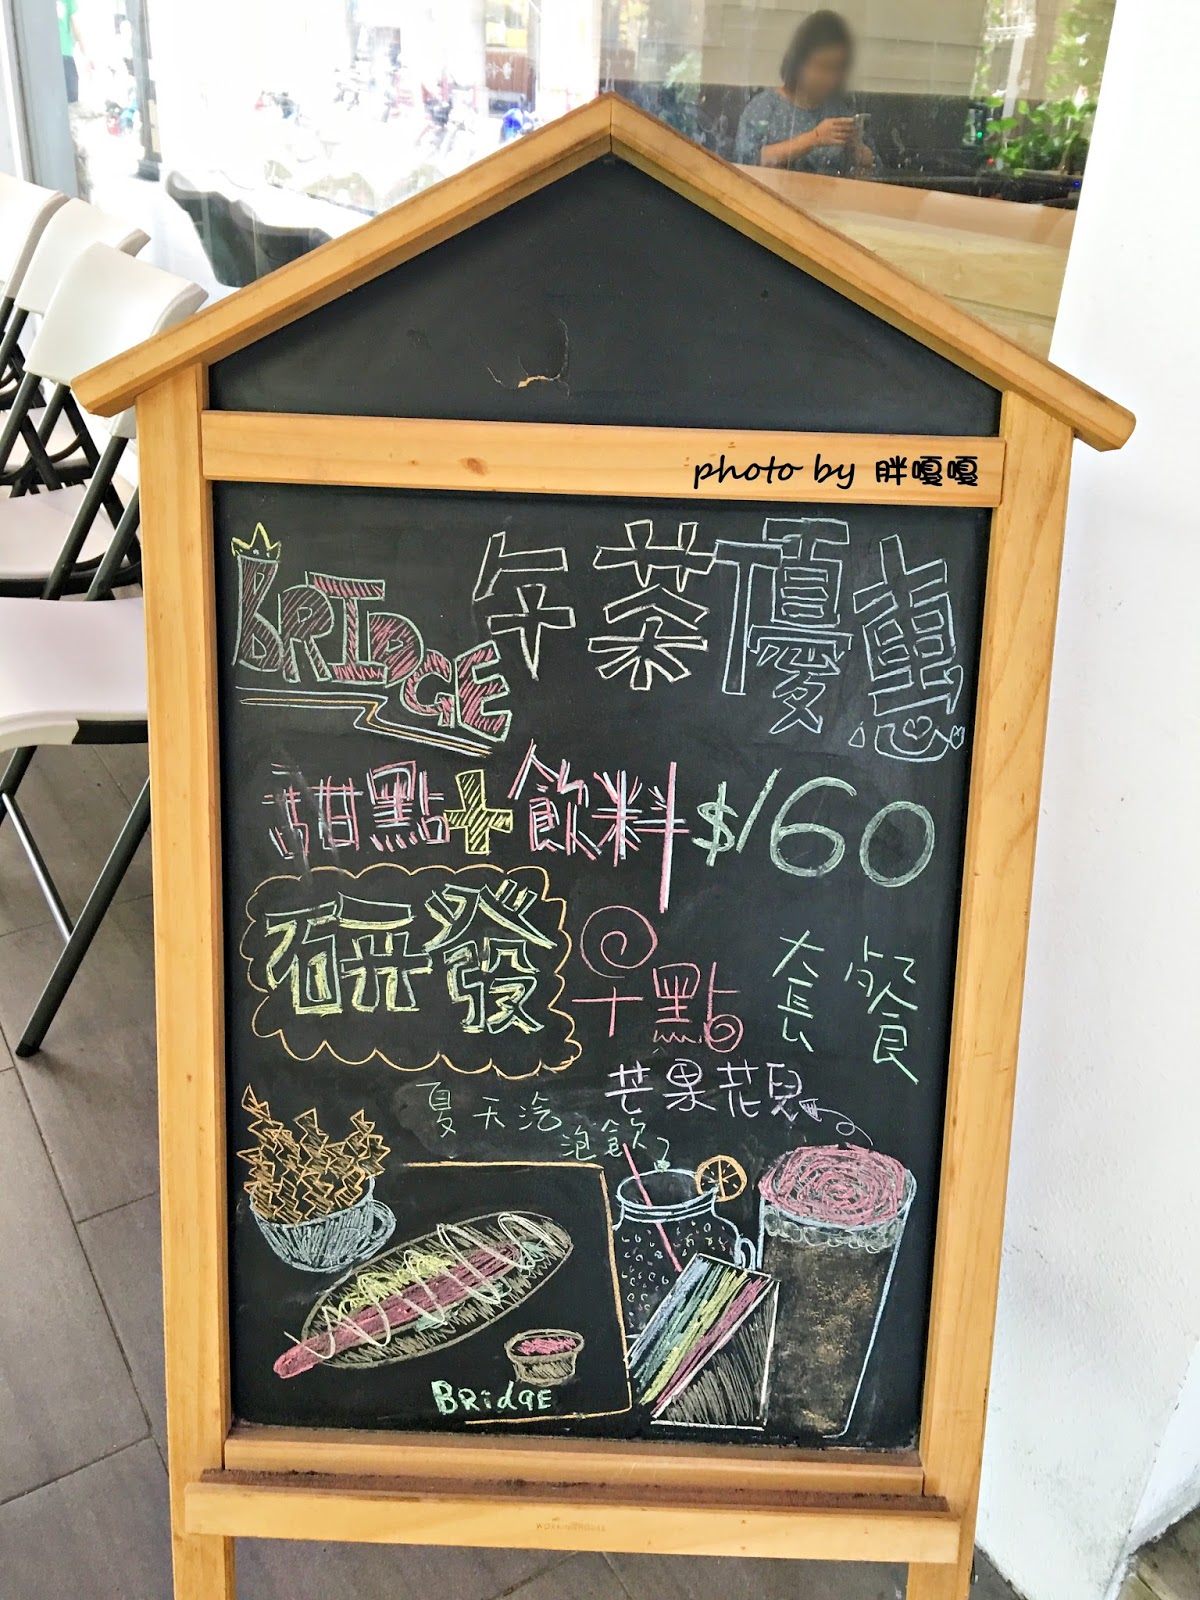 photo by 胖嘎嘎
BRIDGE 午茶優惠
甜點+飲料$160
研發
十點
大長 飲食
芒果花兒
夏天汽
泡飲
BRidgE